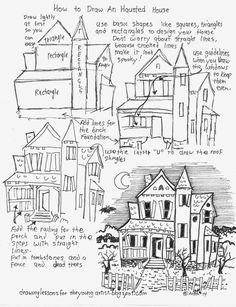 How to Draw An Haunted House
Draw lightly
at first
so you
can
easy
triangle
triangle
Rectangle
Rectangle
RECTANGLE
use Basic shapes like squares, triangles
and rectangles to design your House
Dont worry about straight lines,
because crooked lines
make it look
spooky!
use guidelines
when you draw
the windows
to keep
them
even.
Add lines for
the brick
Foundation.
use the letter "U" to draw the roof
shingles
Add the railing for the
porch and put in the
steps with straight
lines.
Put in tombstones and a
fence and dead trees
drawinglessonsfortheyoungartist.blogspot.com